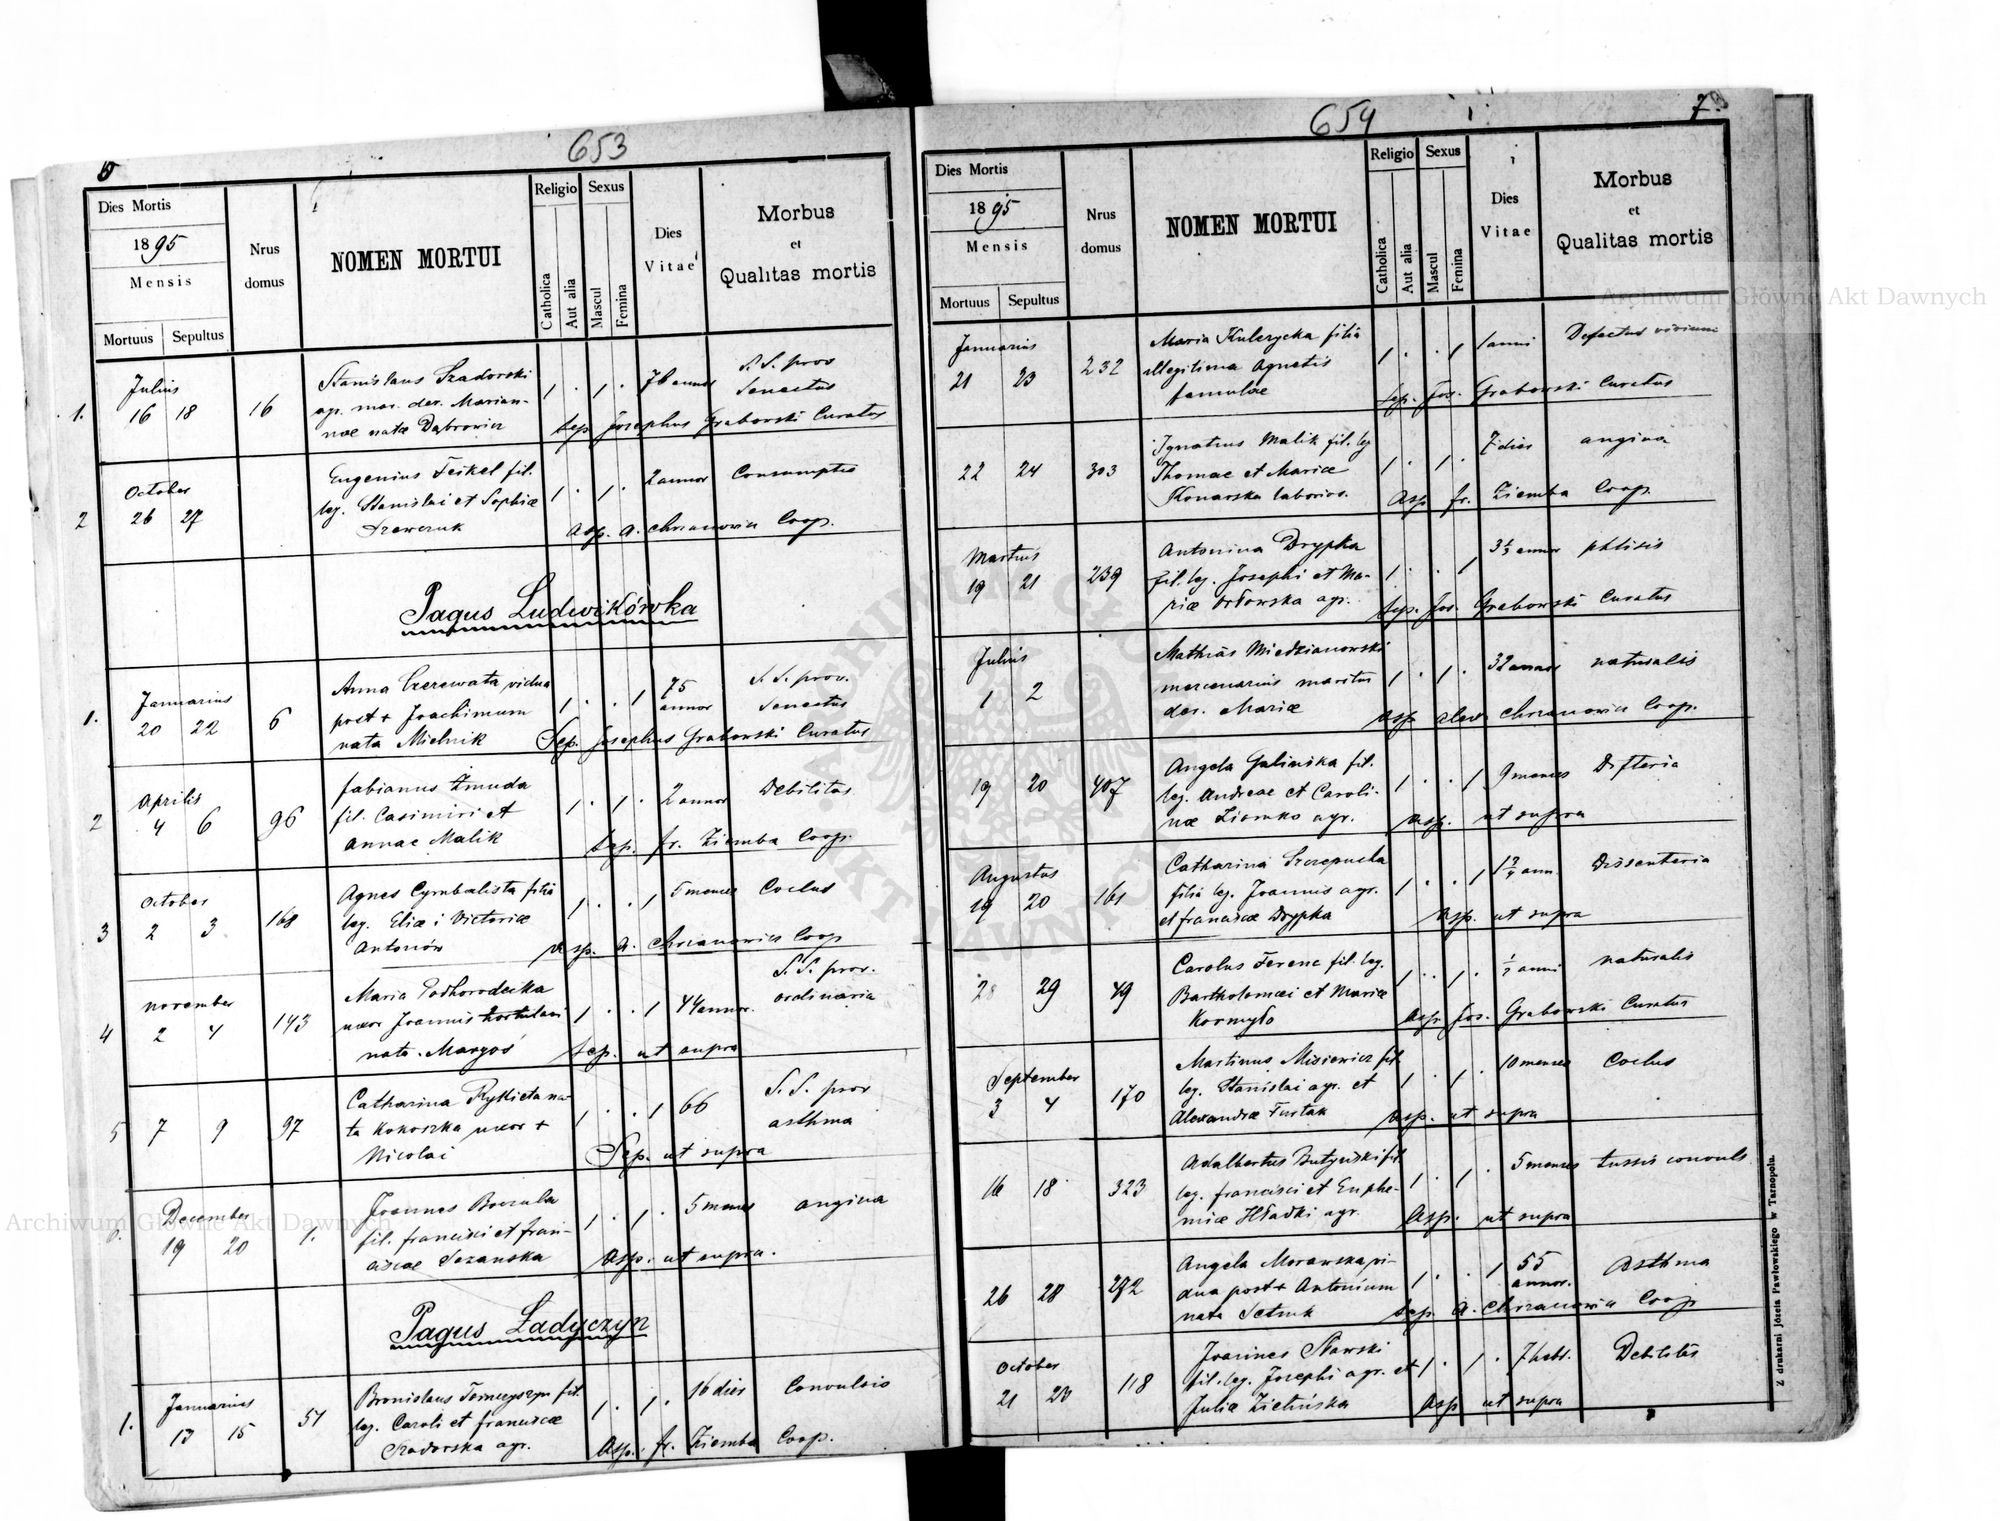 653
Dies Mortis
1895
Mensis
Mortuus Sepultus
Nrus
domus
NOMEN MORTUI
Religio
Catholica
Aut alia
Sexus
Mascul
Femina
Dies
Vitae
Morbus
et
Qualitas mortis
Julius
1. 16 18 16
Stanislaus Szadorski
agr. mar. der. Marian-
nae nata Dąbrowicz
1 . 1 . 76 annor S. S. prov
Senectus
Sep. Josephus Grabowski Curatus
October
2 26 27
Eugenius Feikel fil.
leg. Stanislai et Sophiae
Szewczuk
1 . 1 . 2 annor Consumptio
Asp. A. Chrzanowicz Coop.
Pagus Ludwikówka
Januarius
1. 20 22 6
Anna Czerewata vidua
post + Joachimum
nata Mielnik
1 . . 1 75
annor
S. S. prov.
Senectus
Sep. Josephus Grabowski Curatus
Aprilis
2 4 6 96
Fabianus Żmuda
fil. Casimiri et
Annae Malik
1 . 1 . 2 annor Debilitas
Sep. fr. Ziemba Coop.
October
3 2 3 168
Agnes Cymbalista filia
leg. Eliae i Victoriae
Antonów
1 . . 1 5 menses Coclus
Asp. A. Chrzanowicz Coop
November
4 2 4 143
Maria Podhorodecka
uxor Joannis hortulani
nata Margoś
1 . . 1 44 annor.
S. S. prov.
ordinaria
Sep. ut supra
5 7 9 97
Catharina Rykieta na-
ta Kokoszka uxor +
Nicolai
1 . . 1 66 S. S. prov
asthma
Sep. ut supra
December
6. 19 20 1.
Joannes Boczula
fil. Francisci et Fran-
ciscae Sezanska
1 . 1 . 5 menses angina
Asp. ut supra.
Pagus Ładyczyn
Januarius
1. 13 15 51
Bronislaus Temczyszyn fil.
leg. Caroli et Franciscae
Szadorska agr.
1 . 1 . 16 dies Convulsio
Asp. fr. Ziemba Coop.
654
7.
Dies Mortis
1895
Mensis
Mortuus Sepultus
Nrus
domus
NOMEN MORTUI
Religio
Catholica
Aut alia
Sexus
Mascul
Femina
Dies
Vitae
Morbus
et
Qualitas mortis
Januarius
21 23 232
Maria Kulczycka filia
illegitima Agnetis
famulae
1 . . 1 1 anni Defectus virium
Sep. Jos. Grabowski Curatus
22 24 303
Ignatius Malik fil. leg
Thomae et Mariae
Konarska laborios.
1 . 1 . 7 dies angina
Asp fr. Ziemba Coop.
Martius
19 21 239
Antonina Drypka
fil. leg. Josephi et Ma-
riae Orłowska agr.
1 . . 1 3 1/2 annor phtisis
Sep. Jos. Grabowski Curatus
Julius
1 2
Mathias Miedzianowski
mercenarius maritus
der. Mariae
1 . 1 . 32 annor naturalis
Asp Alex Chrzanowicz Coop.
19 20 407
Angela Galinska fil.
leg. Andreae et Caroli-
nae Ziomko agr.
1 . . 1 9 menses Difteria
Asp. ut supra
Augustus
19 20 161
Catharina Szczepucha
filia leg. Joannis agr.
et Franciscae Drypka
1 . . 1 1 1/2 ann. Dissenteria
Asp. ut supra
28 29 49
Carolus Ferenc fil. leg.
Bartholomaei et Mariae
Kormyło
1 . 1 . 1/2 anni naturalis
Asp Jos. Grabowski Curatus
September
3 4 170
Martinus Misiewicz fil
leg. Stanislai agr. et
Alexandrae Furtak
1 . 1 . 10 menses Coclus
Asp. ut supra
16 18 323
Adalbertus Butyński fil.
leg. Francisci et Euphe-
miae Hładki agr.
1 . 1 . 5 menses tussis convuls
Asp. ut supra
26 28 292
Angela Morawska vi-
dua post + Antonium
nata Setnik
1 . . 1 55
annor.
Asthma
Sep. A. Chrzanowicz Coop
October
21 23 118
Joannes Sławski
fil. leg. Josephi agr. et
Julia Zielińska
1 . 1 . 7 hebd. Debilitas
Asp ut supra
Z drukarni Józefa Pawłowskiego w Tarnopolu.
Archiwum Główne Akt Dawnych
Archiwum Główne Akt Dawnych